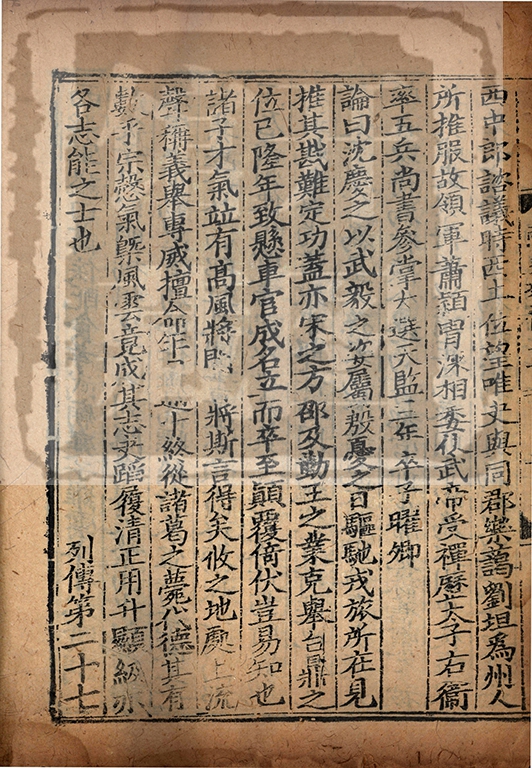 西中郎諮議時西土位望唯夬與同郡樂藹劉坦爲州人
所推服故領軍蕭穎冑深相委仗武帝受禪歷太子右衞
率五兵尚書參掌大選天監二年卒子曜卿
論曰沈慶之以武毅之姿屬殷憂之日驅馳戎旅所在見
推其戡難定功蓋亦宋之方邵及勤王之業克舉台鼎之
位已隆年致懸車官成名立而卒至顚覆倚伏豈易知也
諸子才氣竝有高風將門 將斯言得矣攸之地處上流
聲稱義舉專威擅命年 十終從諸葛之釁代德其有
數乎宗慤氣槩風雲竟成其志夬蹈履清正用升顯級亦
各志能之士也
列傳第二十七